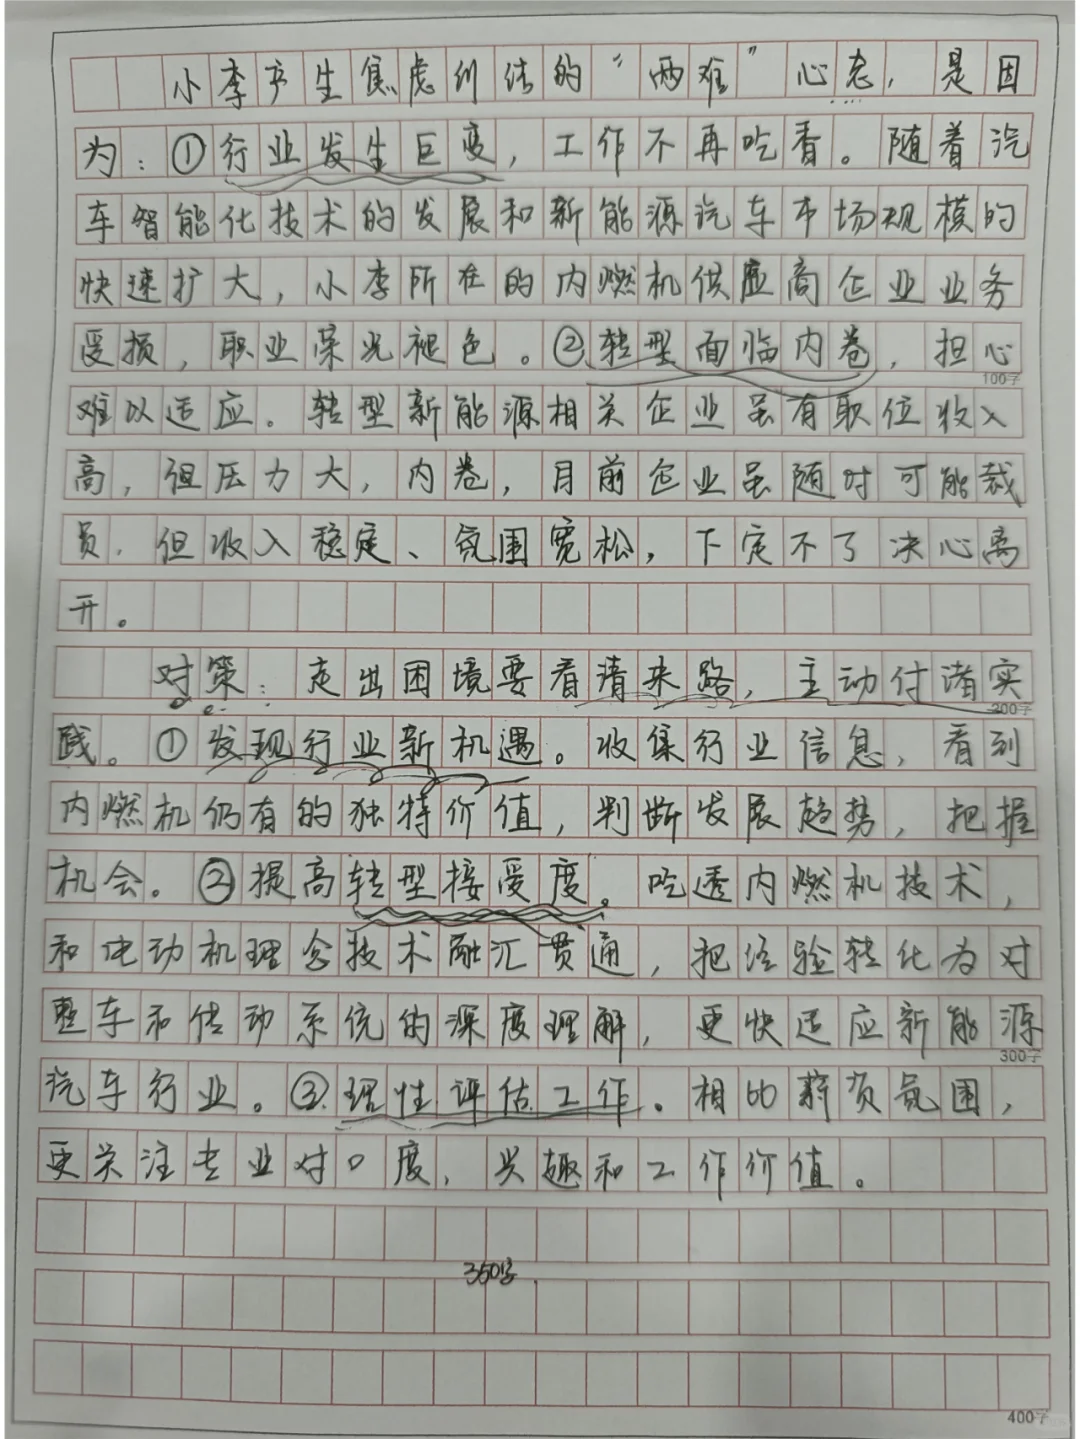 小李产生焦虑纠结的“两难”心态，是因
为：①行业发生巨变，工作不再吃香。随着汽
车智能化技术的发展和新能源汽车市场规模的
快速扩大，小李所在的内燃机供应商企业业务
受损，职业荣光褪色。②转型面临内卷，担心
100字
难以适应。转型新能源相关企业虽有职位收入
高，但压力大，内卷，目前企业虽随时可能裁
员，但收入稳定、氛围宽松，下定不了决心离
开。
对策：走出困境要看清来路，主动付诸实
200字
践。①发现行业新机遇。收集行业信息，看到
内燃机仍有的独特价值，判断发展趋势，把握
机会。②提高转型接受度。吃透内燃机技术，
和电动机理念技术融汇贯通，把经验转化为对
整车和传动系统的深度理解，更快适应新能源
300字
汽车行业。③理性评估工作。相比薪资氛围，
更关注专业对口度，兴趣和工作价值。
350字
400字